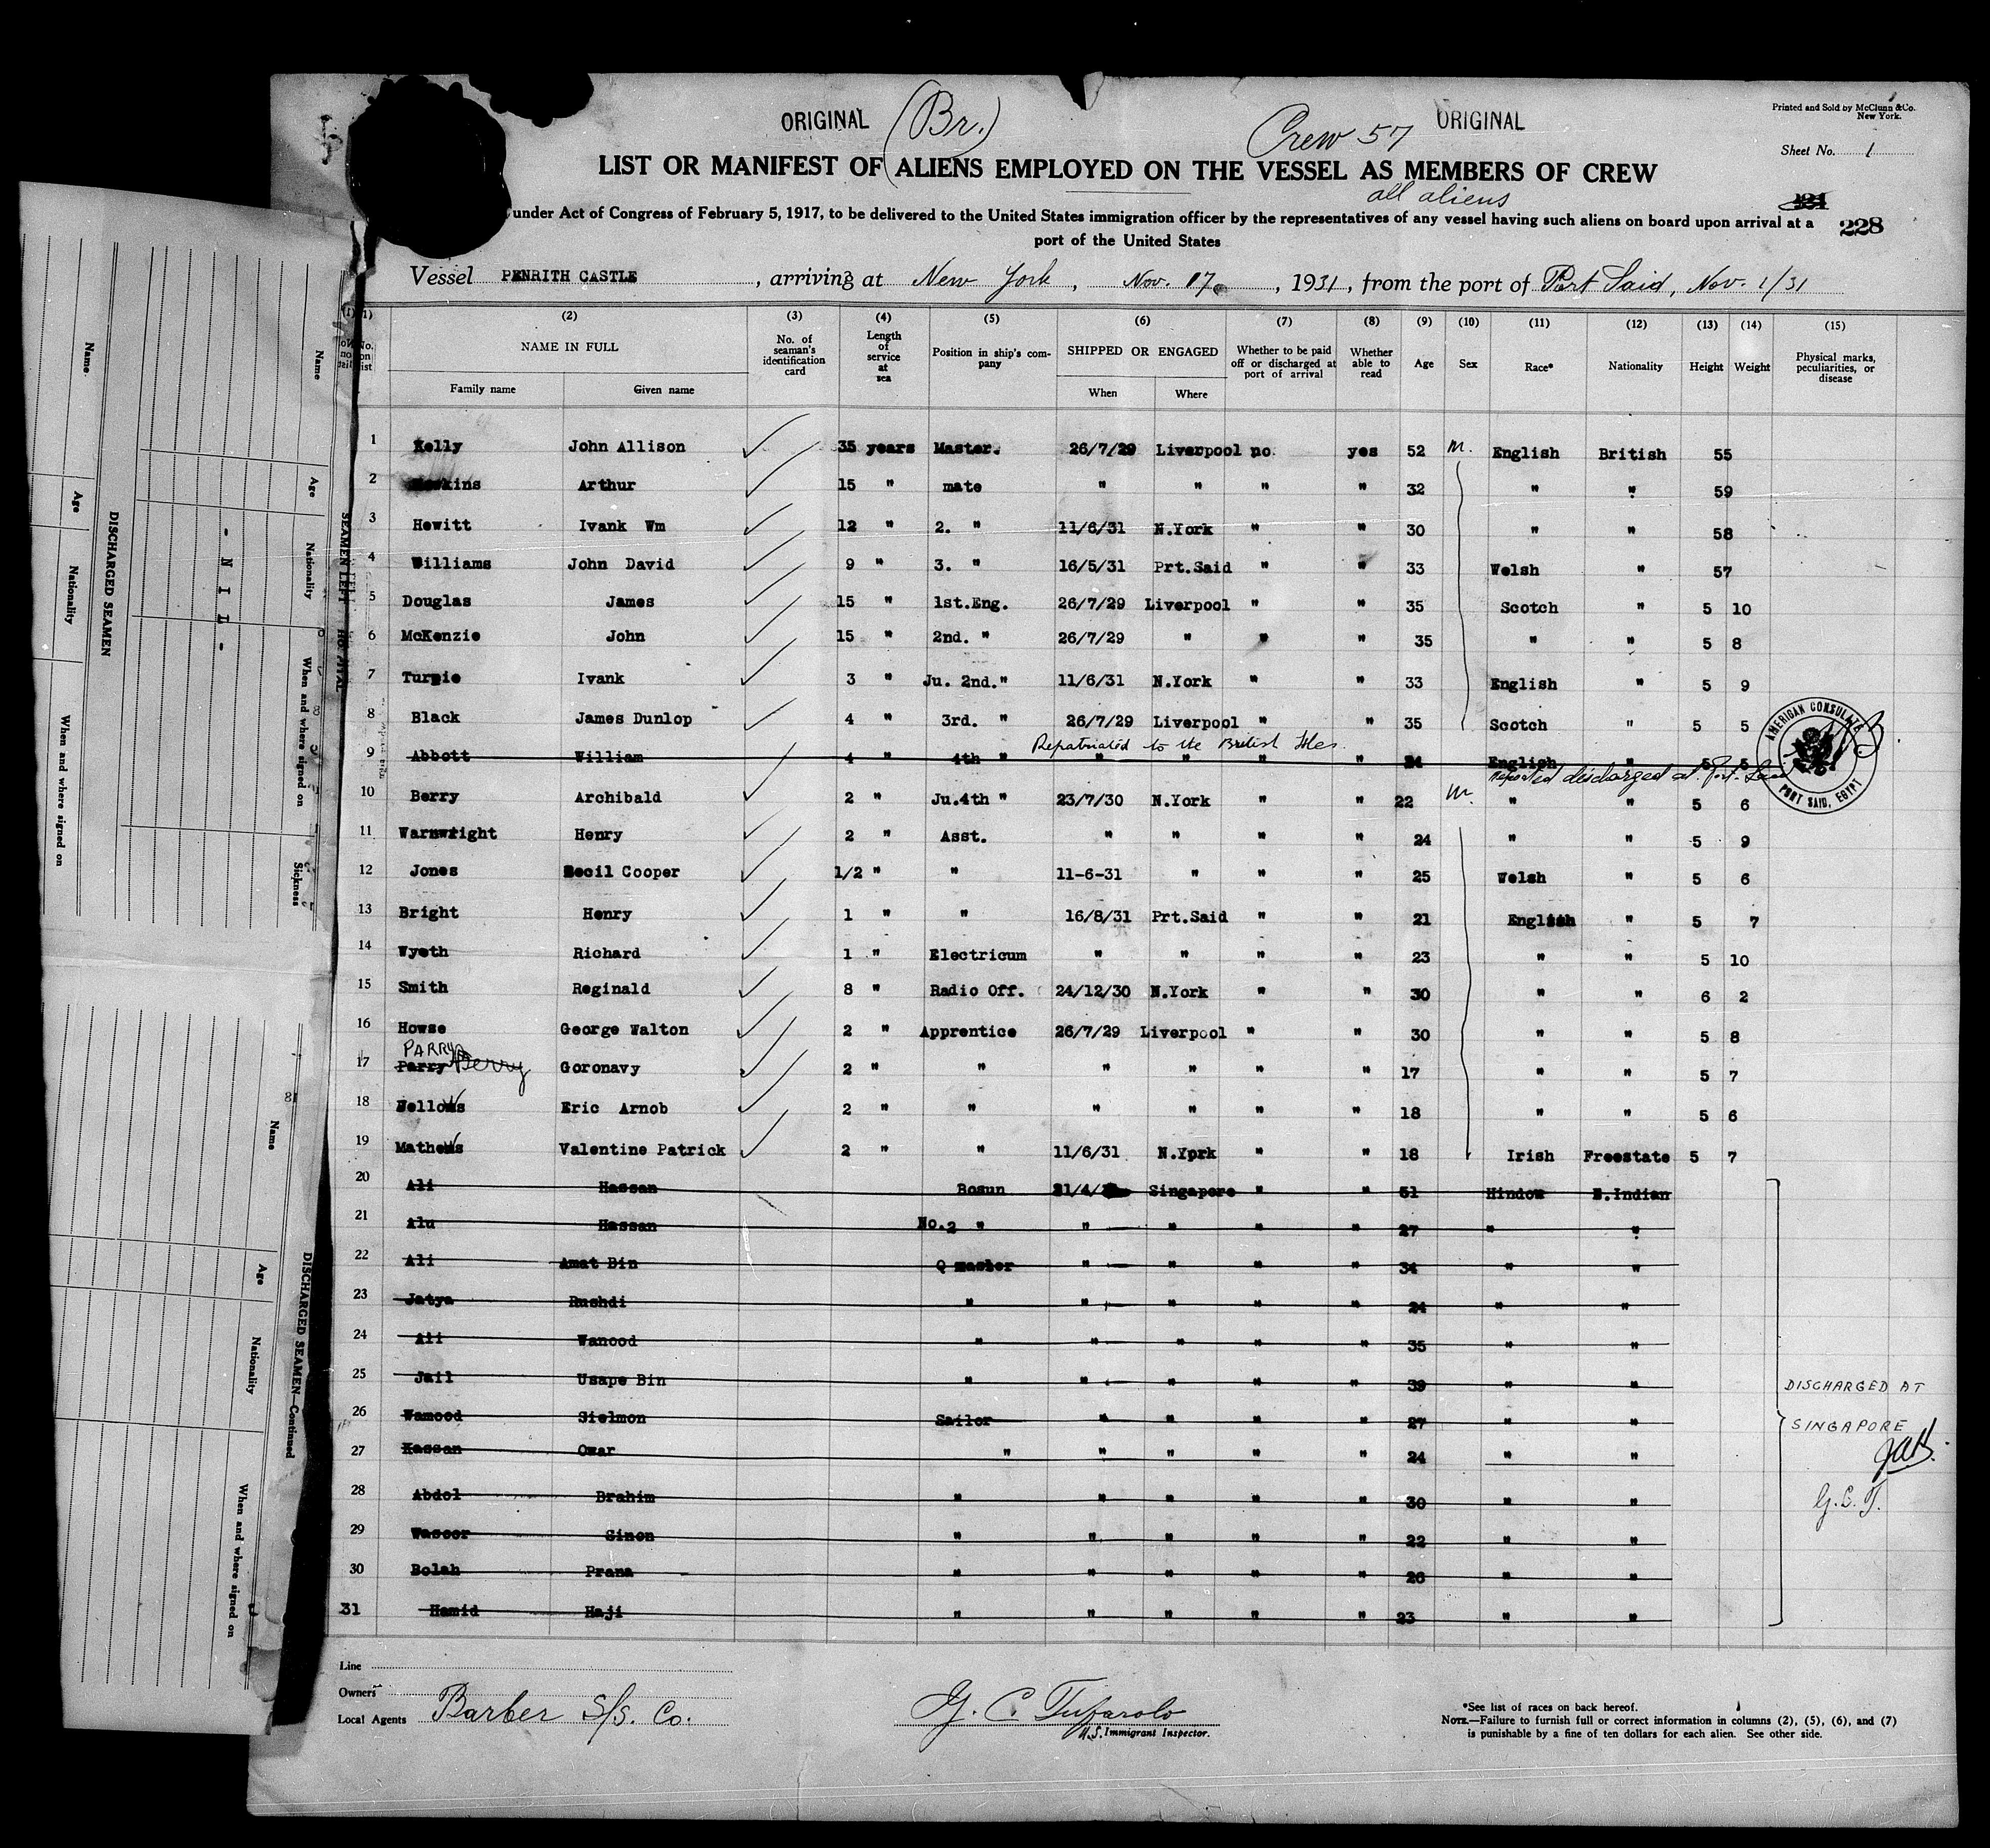 ORIGINAL (Br.) Crew 57 ORIGINAL
Printed and Sold by McClunn & Co.
New York.
Sheet No. 1
LIST OR MANIFEST OF ALIENS EMPLOYED ON THE VESSEL AS MEMBERS OF CREW
all aliens
under Act of Congress of February 5, 1917, to be delivered to the United States immigration officer by the representatives of any vessel having such aliens on board upon arrival at a
port of the United States
228
Vessel PENRITH CASTLE, arriving at New York, Nov. 17, 1931, from the port of Port Said, Nov. 1/31
(1) (2) (3) (4) (5) (6) (7) (8) (9) (10) (11) (12) (13) (14) (15)
No. on list
NAME IN FULL
Family name Given name
No. of seaman's identification card
Length of service at sea
Position in ship's company
SHIPPED OR ENGAGED
When Where
Whether to be paid off or discharged at port of arrival
Whether able to read
Age
Sex
Race*
Nationality
Height
Weight
Physical marks, peculiarities, or disease
1 Kelly John Allison 35 years Master. 26/7/29 Liverpool no. yes 52 m. English British 55
2 kins Arthur 15 " mate " " " " 32 " " 59
3 Hewitt Ivank Wm 12 " 2. " 11/6/31 N.York " " 30 " " 58
4 Williams John David 9 " 3. " 16/5/31 Prt.Said " " 33 Welsh " 57
5 Douglas James 15 " 1st.Eng. 26/7/29 Liverpool " " 35 Scotch " 5 10
6 McKenzie John 15 " 2nd. " 26/7/29 " " " 35 " " 5 8
7 Turpie Ivank 3 " Ju. 2nd." 11/6/31 N.York " " 33 English " 5 9
8 Black James Dunlop 4 " 3rd. " 26/7/29 Liverpool " " 35 Scotch " 5 5
Repatriated to the British Isles.
9 Abbott William 4 " 4th " " " " " 24 English " 5 5
discharged at Port Said
AMERICAN CONSULATE
PORT SAID, EGYPT
10 Berry Archibald 2 " Ju.4th " 23/7/30 N.York " " 22 m. " " 5 6
11 Warnwright Henry 2 " Asst. " " " " 24 " " 5 9
12 Jones Cooper 1/2 " " 11-6-31 " " " 25 Welsh " 5 6
13 Bright Henry 1 " " 16/8/31 Prt.Said " " 21 English " 5 7
14 Wyeth Richard 1 " Electricum " " " " 23 " " 5 10
15 Smith Reginald 8 " Radio Off. 24/12/30 N.York " " 30 " " 6 2
16 Howse George Walton 2 " Apprentice 26/7/29 Liverpool " " 30 " " 5 8
PARRY
17 Parry Berry Goronavy 2 " " " " " " 17 " " 5 7
18 Eric Arnob 2 " " " " " " 18 " " 5 6
19 Mathews Valentine Patrick 2 " " 11/6/31 N.Yprk " " 18 Irish Freestate 5 7
20 Ali Hassan Bosun Singapore " " 51 Hindou
21 Alu Hassan No.2 " " " " " 27 " "
22 Ali Amat Bin Q master " " " " 34 " "
23 Jatya Rushdi " " " " " 24 " "
24 Ali Wanood " " " " " 35 " "
25 Jail Usape Bin " " " " " 39 " "
26 Wamood Sielmon Sailor " " " " 27 " "
27 Kassan Omar " " " " " 24 " "
28 Abdol Brahim " " " " " 30 " "
29 Wassor Sinen " " " " " 22 " "
30 Bolah Prana " " " " " 26 " "
31 Hamid Haji " " " " " 23 " "
DISCHARGED AT
SINGAPORE
G.C.T.
Line
Owners
Local Agents Barber S/S. Co.
G. C. Tufarolo
U.S. Immigrant Inspector.
*See list of races on back hereof.
NOTE.—Failure to furnish full or correct information in columns (2), (5), (6), and (7)
is punishable by a fine of ten dollars for each alien. See other side.
DISCHARGED SEAMEN
Name Age Nationality When and where signed on
SEAMEN LEFT
Name Age Nationality When and where signed on Sickness
- N I L -
DISCHARGED SEAMEN—Continued
Name Age Nationality When and where signed on